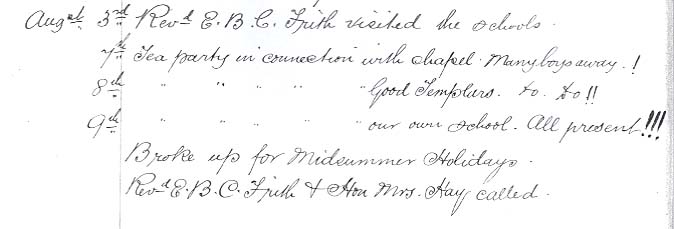 Augst 3rd Revd E. B. C. Frith visited the schools.
7th Tea party in connection with chapel. Many boys away. !
8th " " " " " Good Templars. Do. Do!!
9th " " " " " our own school. All present!!!
Broke up for Midsummer Holidays.
Revd E. B. C. Frith & Hon Mrs. Hay called.